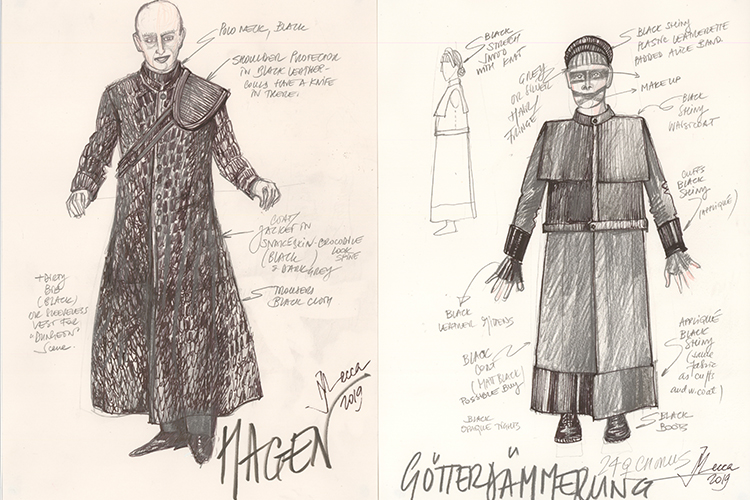 POLO NECK, BLACK
SHOULDER PROTECTOR
IN BLACK LEATHER-
COULD HAVE A KNIFE
IN THERE.
COAT
JACKET IN
SNAKESKIN-CROCODILE
(BLACK) LOOK
& DARK GREY
TROUSERS
BLACK CLOTH
+ DIRTY
BIB
(BLACK)
OR SLEEVELESS
VEST FOR
"DUNGEON"
Scene.
HAGEN
Mecca
2019
BLACK
STRETCH
SNOOD
WITH KNOT
GREY
OR SILVER
HAIR/
FRINGE
BLACK SHINY
PLASTIC LEATHERETTE
PADDED ALICE BAND
MAKE UP
BLACK
SHINY
WAISTCOAT
CUFFS
BLACK
SHINY
(APPLIQUÉ)
BLACK
LEATHER MITTENS
BLACK
COAT
(MATT BLACK)
POSSIBLE BUY
BLACK
OPAQUE TIGHTS
APPLIQUÉ
BLACK
SHINY
(same
fabric
as cuffs
and w.coat)
BLACK
BOOTS
24 ♀ CHORUS
GÖTTERDÄMMERUNG
Mecca
2019